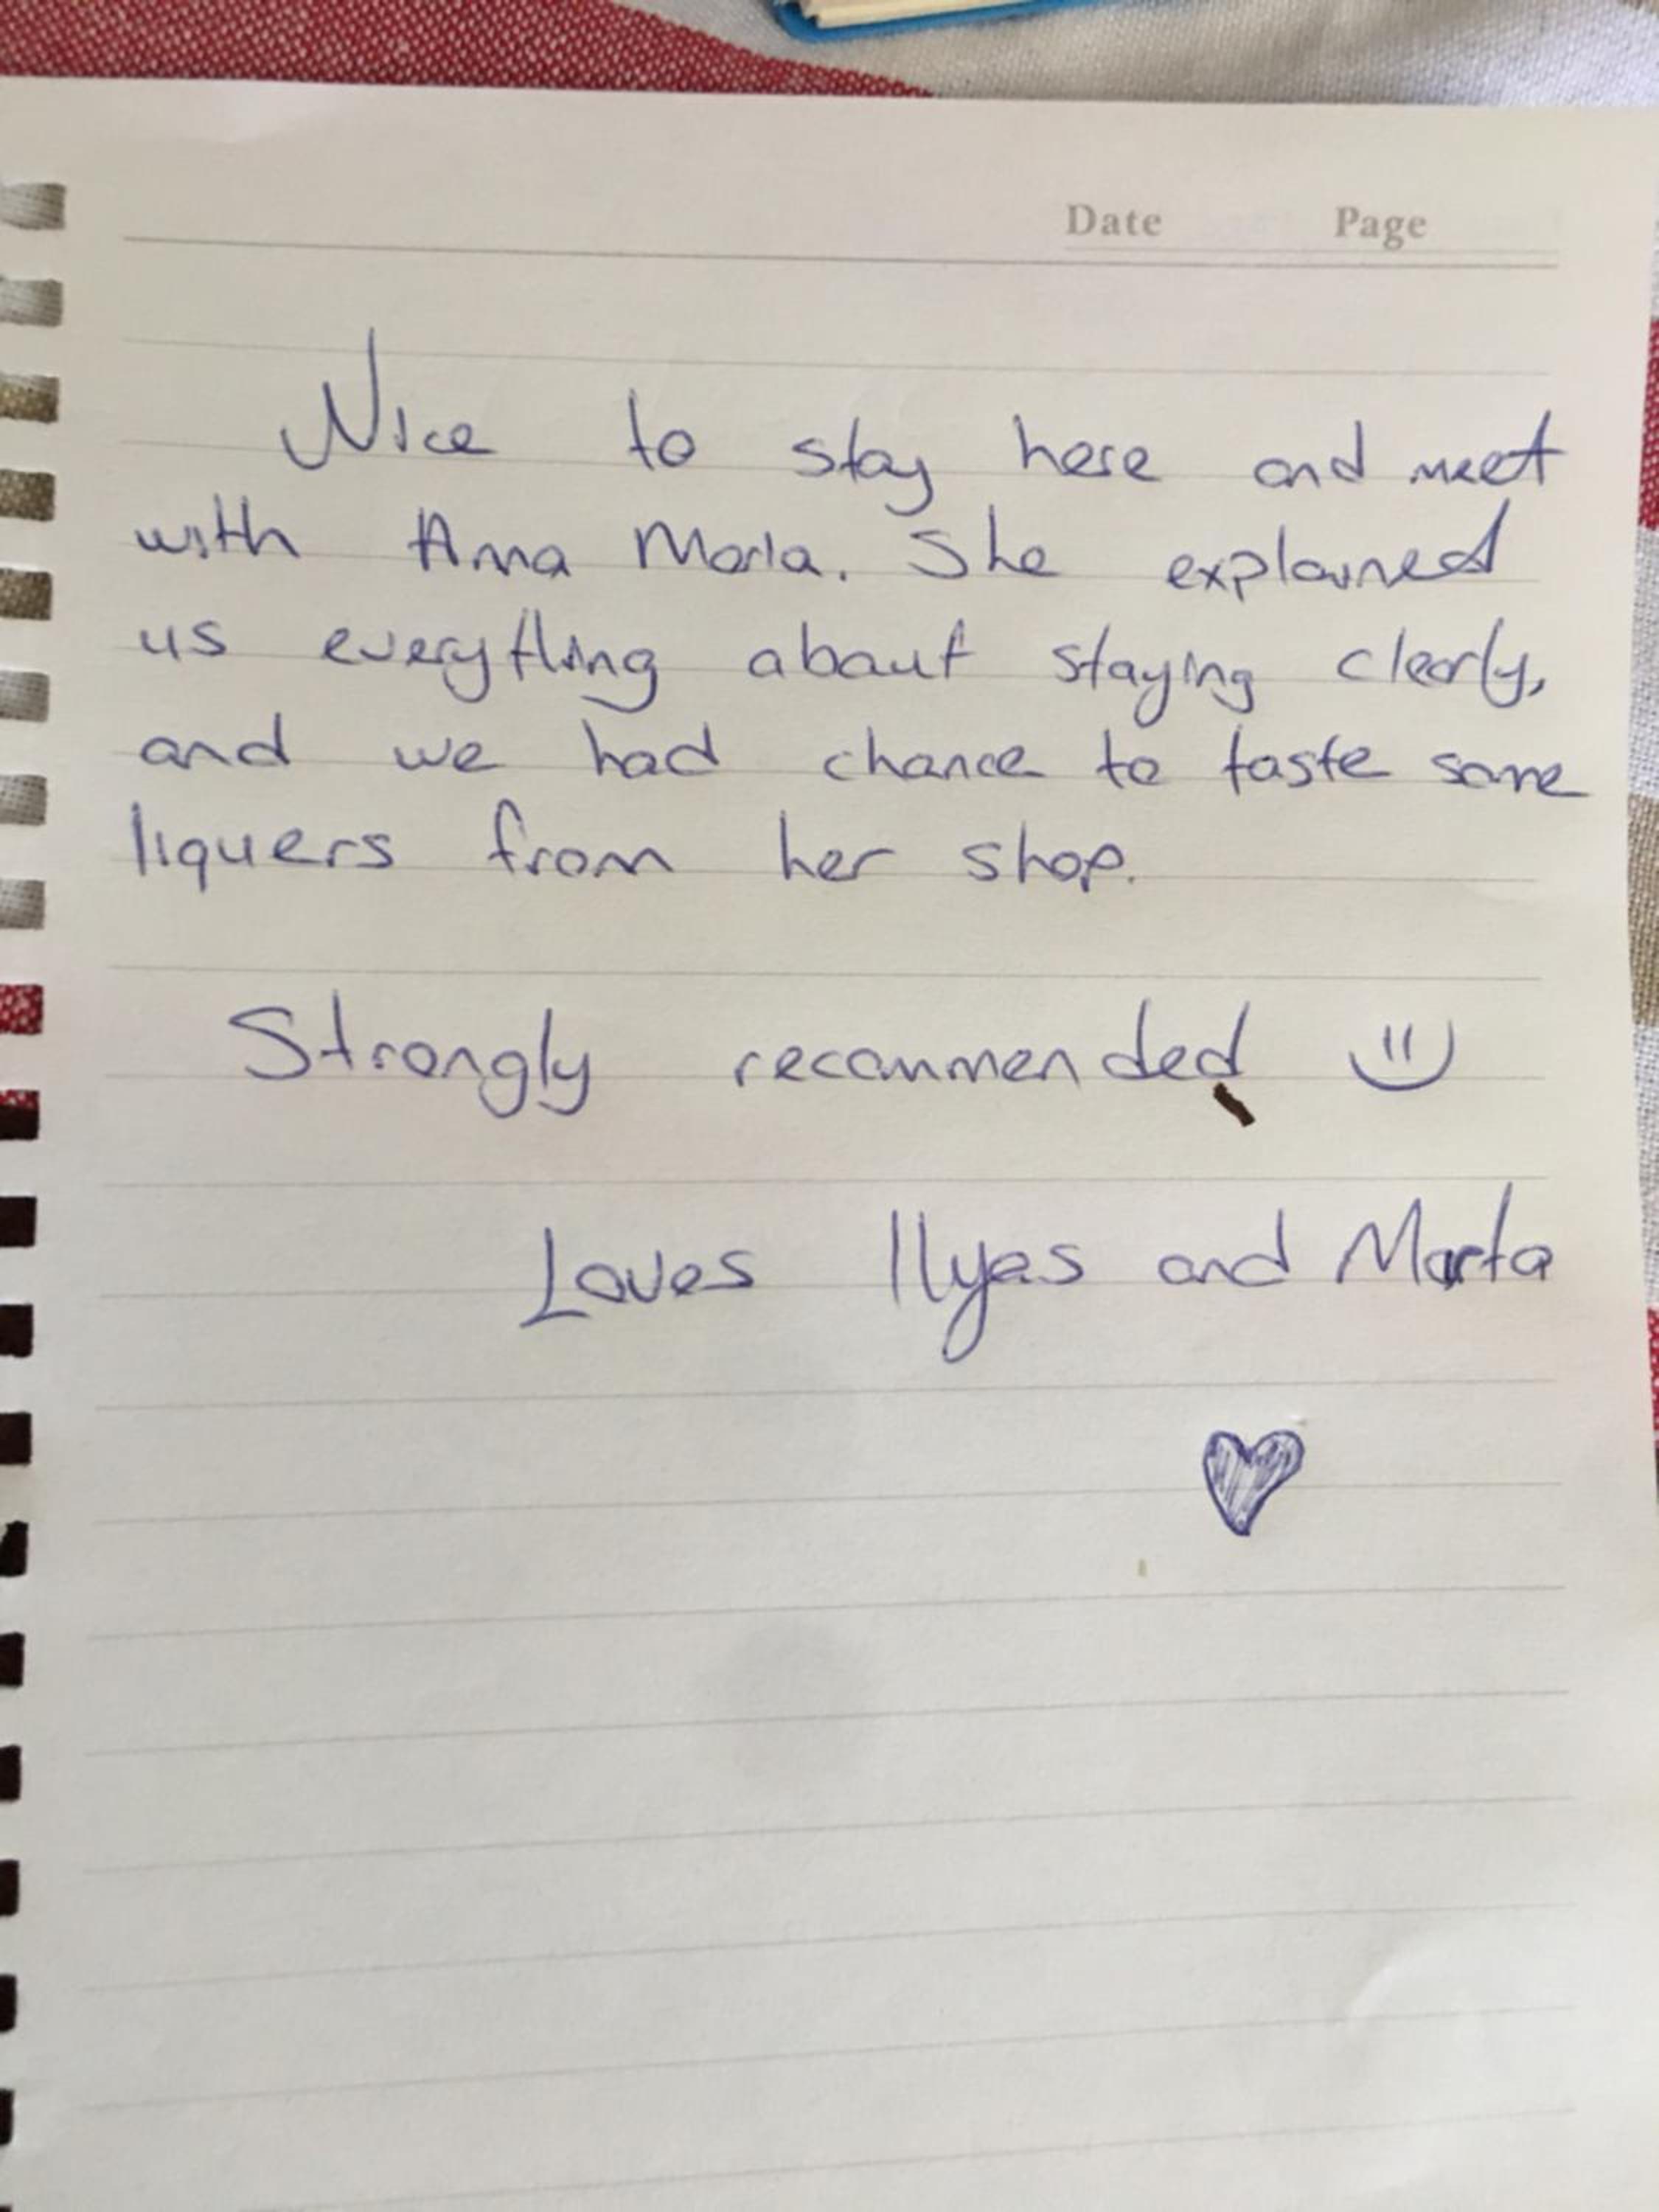 Date Page
Nice to stay here and meet
with Anna Maria. She explained
us everything about staying clearly,
and we had chance to taste some
liquers from her shop.
Strongly recommended
Loves Ilyas and Marta